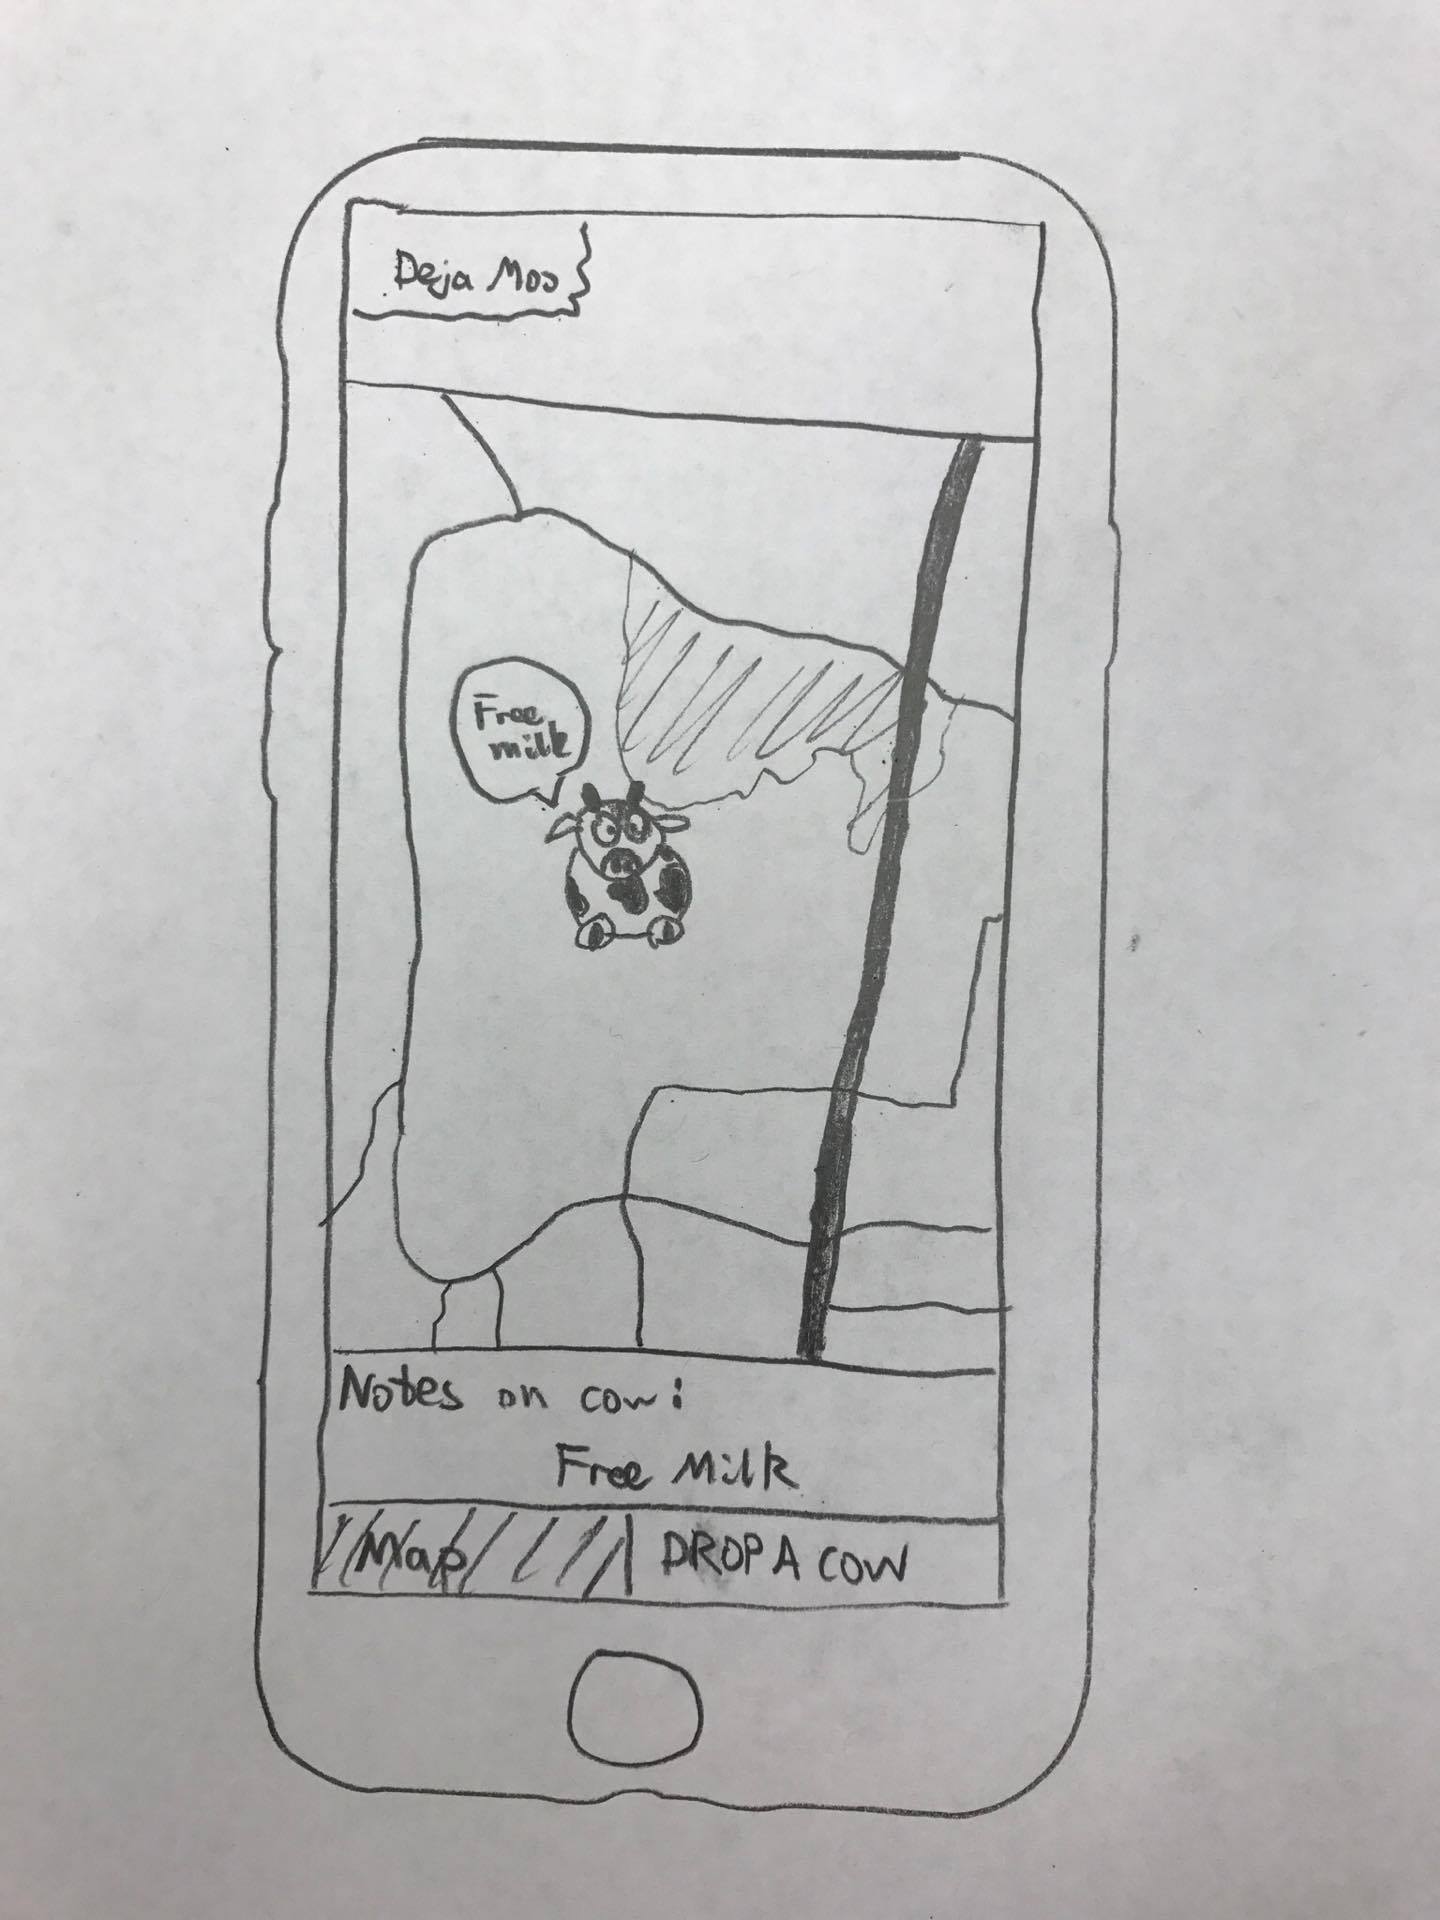 Deja Moo
Free
milk
Notes on cow:
Free Milk
Map
DROP A COW